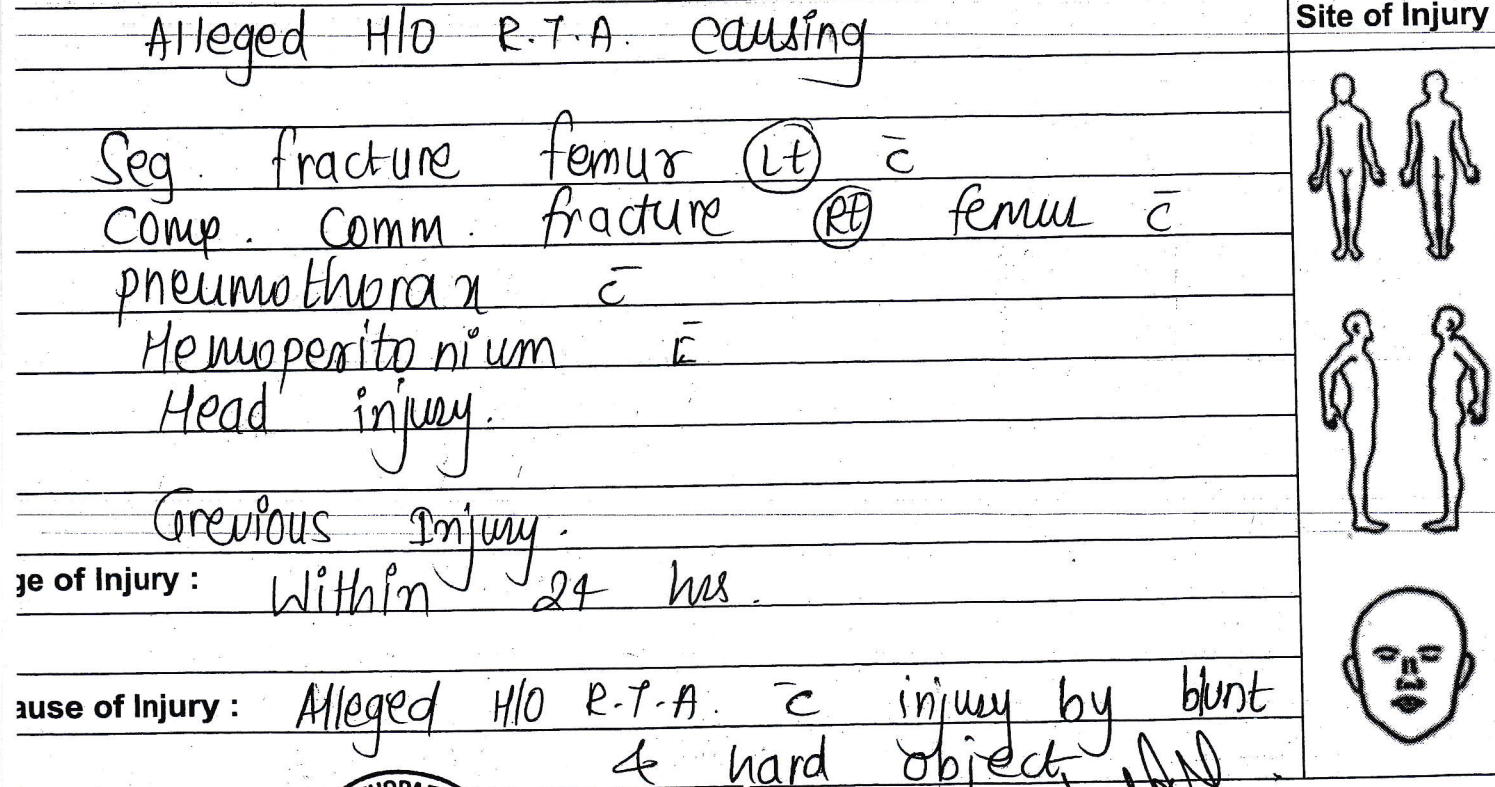 Alleged H/O R.T.A. causing
Site of Injury
Seg. fracture femur Lt c̄
Comp. Comm. fracture Rt femur c̄
pneumothorax c̄
Hemoperitonium c̄
Head injury.
Grevious Injury.
ge of Injury : Within 24 hrs.
ause of Injury : Alleged H/O R.T.A. c̄ injury by blunt
& hard object